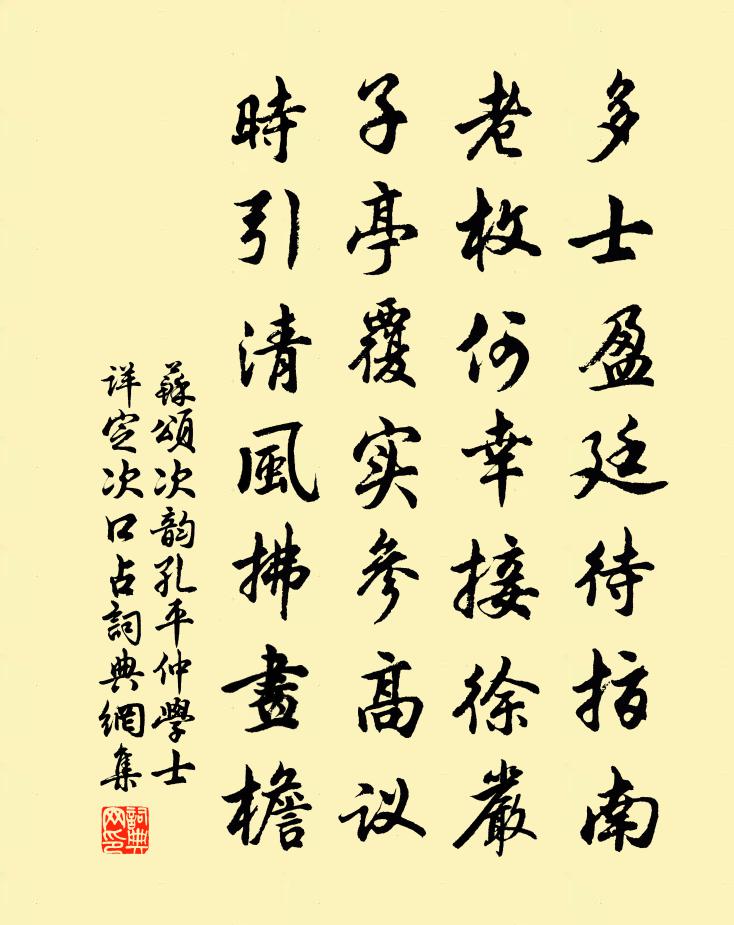 多士盈廷待指南
老枚何幸接徐嚴
子亭覆实參高议
時引清風拂畫檐
蘇頌次韵孔平仲學士
详定次口占詞典網集
詞典網印